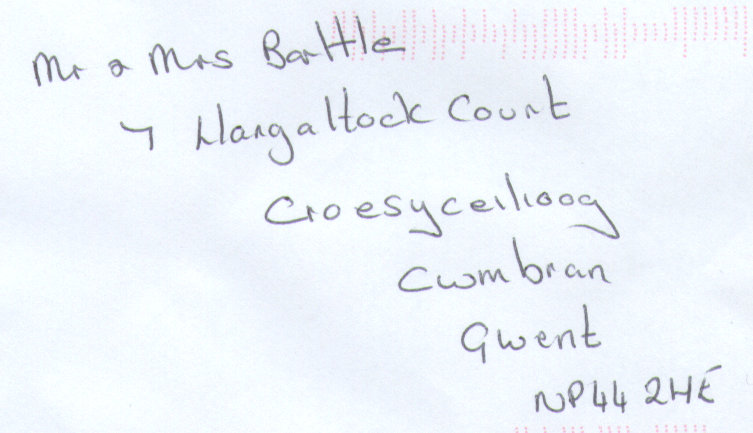 Mr & Mrs Barttle
7 Llangattock Court
Croesyceiliog
Cwmbran
Gwent
NP44 2HE